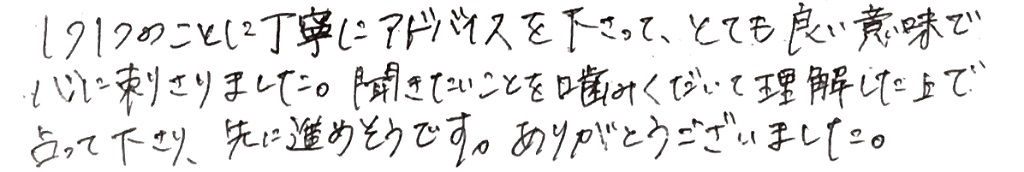 1つ1つのことに丁寧にアドバイスを下さって、とても良い意味で
心に刺さりました。聞きたいことを噛みくだいて理解した上で
占って下さり、先に進めそうです。ありがとうございました。